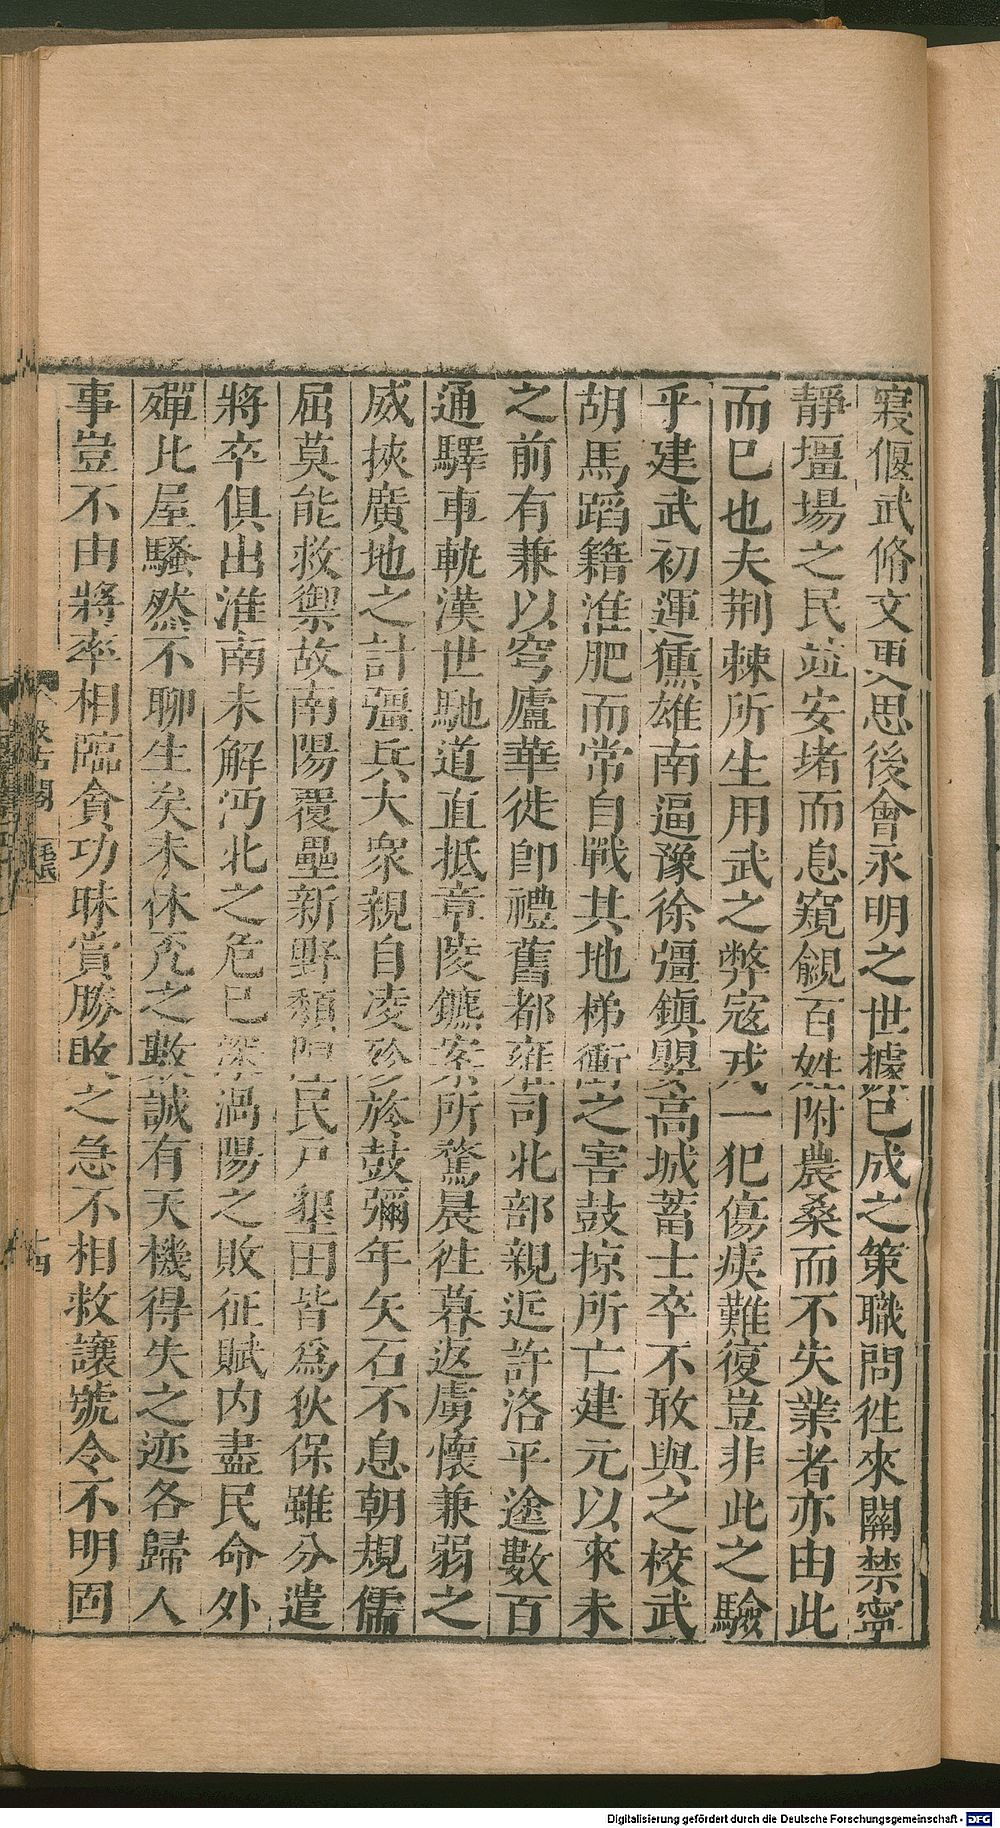 寢偃武脩文更思後會永明之世據已成之策職問往來關禁寧
靜壃場之民竝安堵而息窺覦百姓附農桑而不失業者亦由此
而已也夫荆棘所生用武之弊寇戎一犯傷痍難復豈非此之驗
乎建武初運獯雄南逼豫徐彊鎮嬰高城蓄士卒不敢與之校武
胡馬蹈籍淮肥而常自戰其地梯衝之害鼓掠所亡建元以來未
之前有兼以穹廬華徙卽禮舊都雍司北部親近許洛平途數百
通驛車軌漢世馳道直抵章陵鑣案所騖晨往暮返虜懷兼弱之
威挾廣地之計彊兵大衆親自凌殄旍鼓彌年矢石不息朝規儒
屈莫能救禦故南陽覆壘新野頹隍民戶墾田皆爲狄保雖分遣
將卒俱出淮南未解沔北之危已深渦陽之敗征賦内盡民命外
殫比屋騷然不聊生矣未休兗之數誠有天機得失之迹各歸人
事豈不由將率相臨貪功昧賞勝敗之急不相救讓號令不明固
汲古閣
毛氏
Digitalisierung gefördert durch die Deutsche Forschungsgemeinschaft - DFG